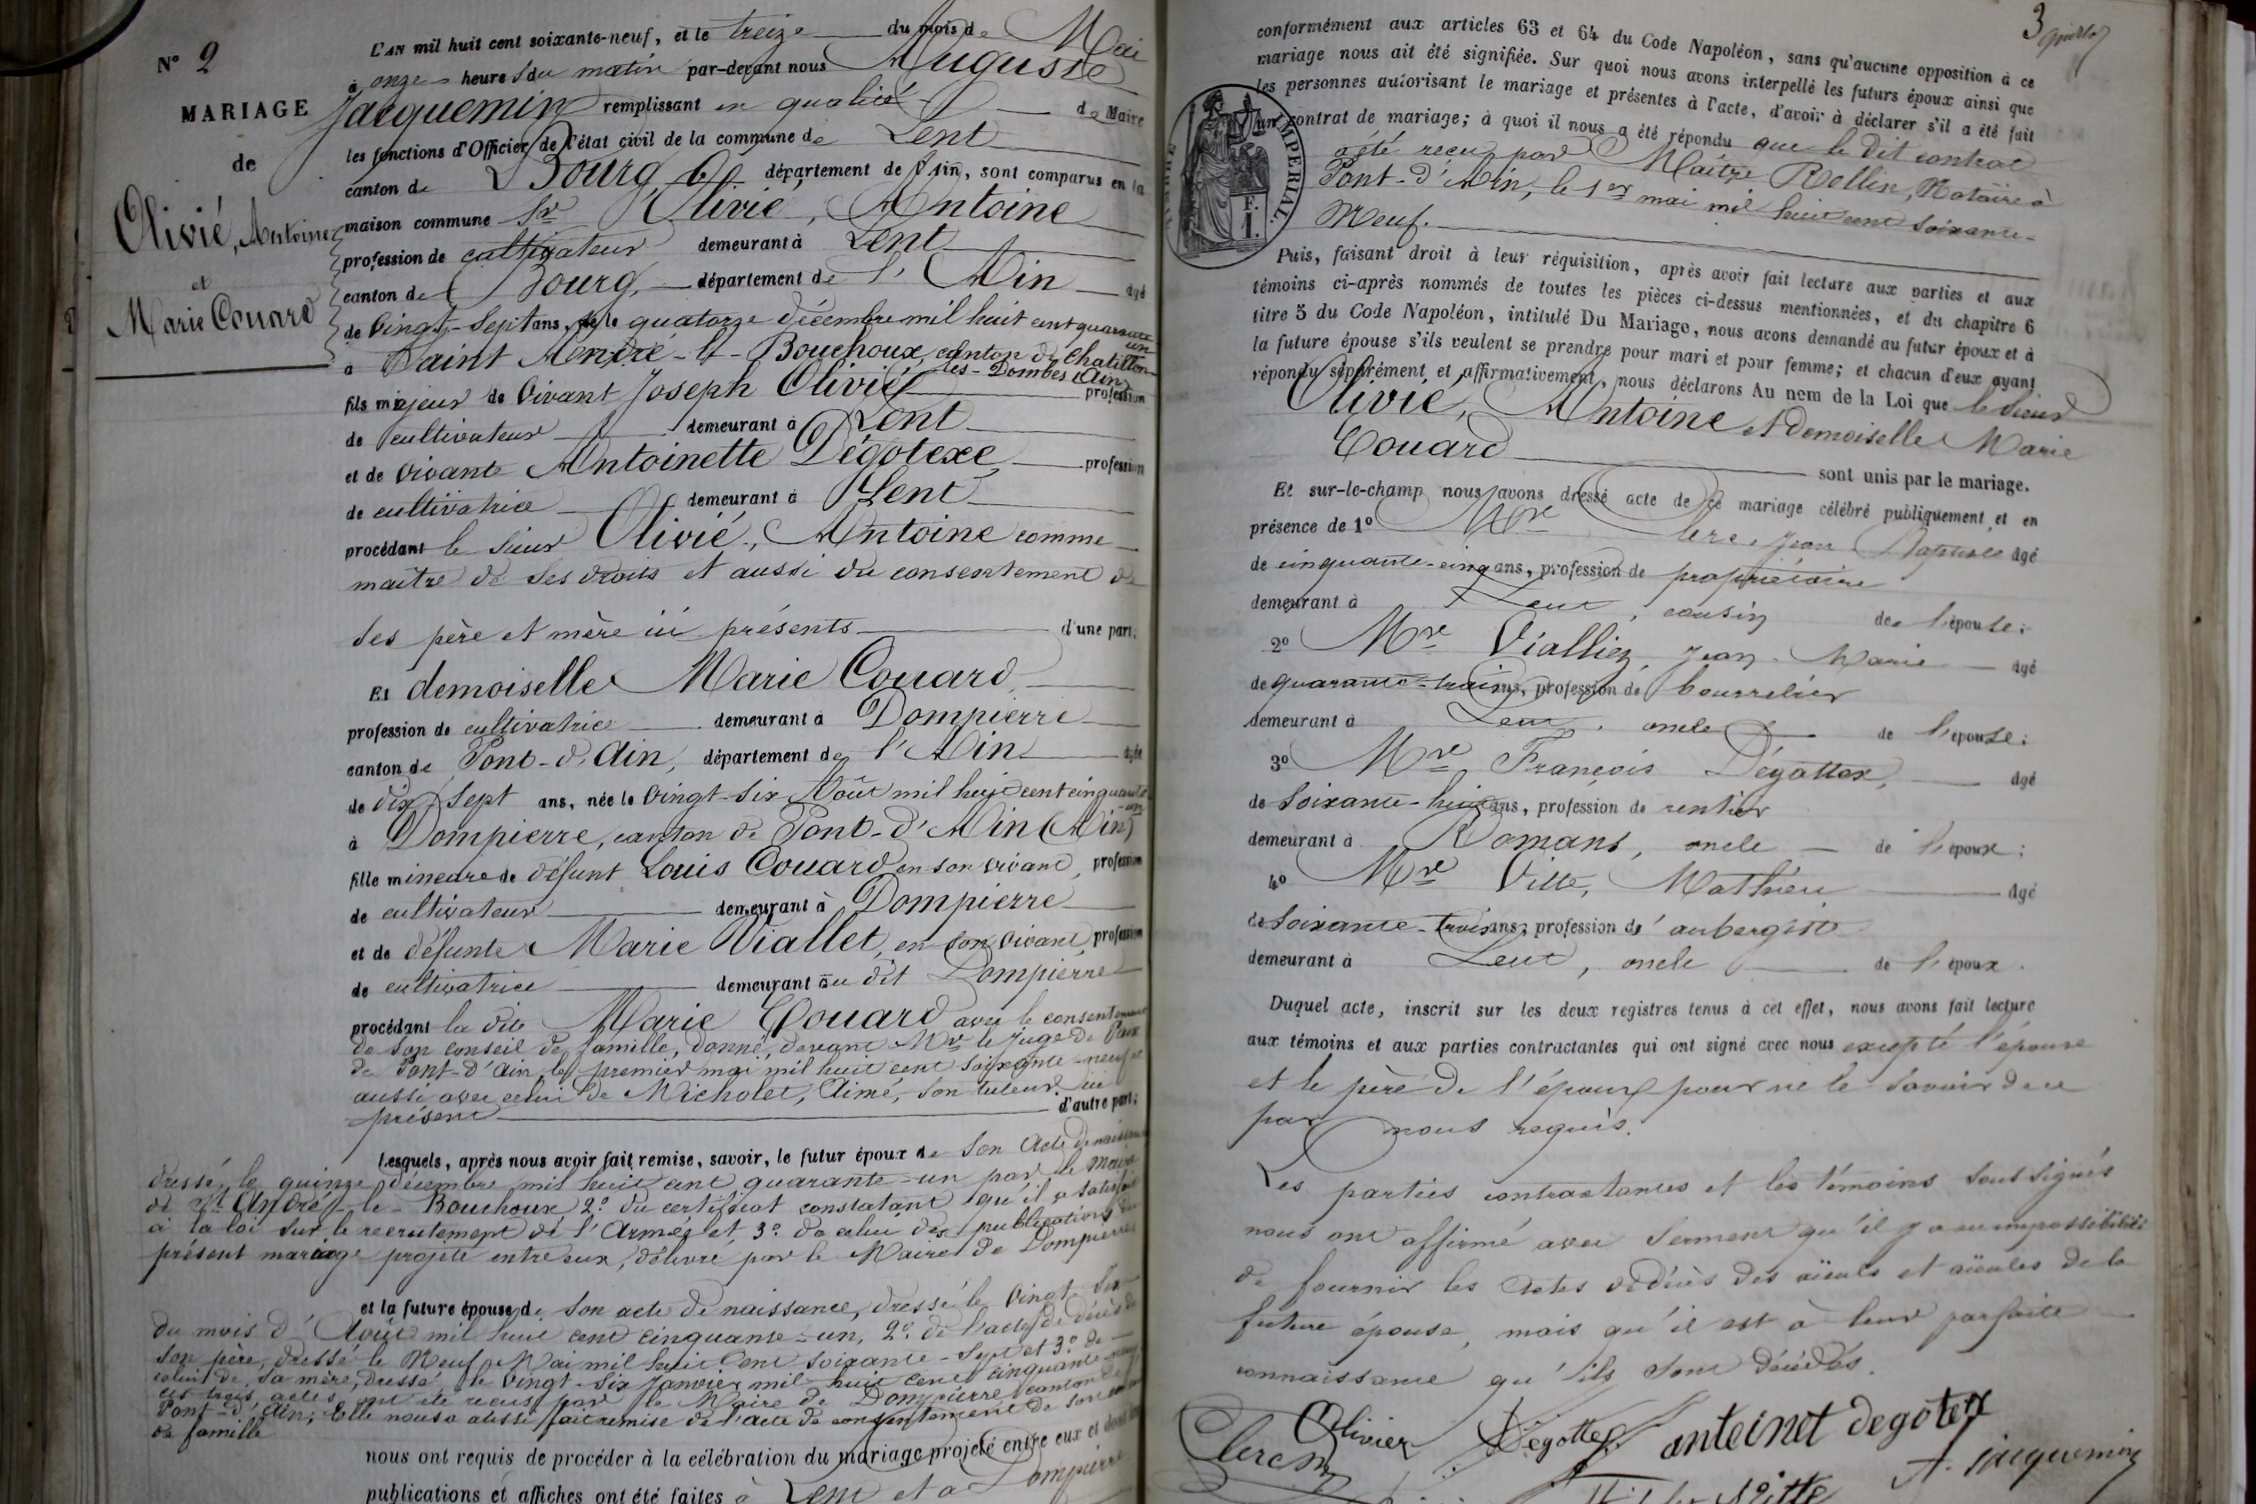 N° 2
MARIAGE
de
Olivié, Antoine
et
Marie Couard
L'AN mil huit cent soixante-neuf, et le treize du mois de Mai
à onze heures du matin par-devant nous Auguste
Jacquemin remplissant en qualité de Maire
les fonctions d'Officier de l'état civil de la commune de Lent
canton de Bourg département de l'Ain, sont comparus en la
maison commune Sr Olivié, Antoine
profession de cultivateur demeurant à Lent
canton de Bourg, département de l'Ain âgé
de vingt-sept ans, né le quatorze décembre mil huit cent quarante
un
à Saint André-le-Bouchoux, canton de Chatillon
les-Dombes (Ain)
fils majeur de vivant Joseph Olivié profession
de cultivateur demeurant à Lent
et de vivante Antoinette Dégotexe, profession
de cultivatrice demeurant à Lent
procédant le sieur Olivié, Antoine comme
maître de ses droits et aussi du consentement de
ses père et mère ici présents d'une part;
Et demoiselle Marie Couard,
profession de cultivatrice demeurant à Dompierre
canton de Pont-d'Ain, département de l'Ain âgée
de dix-sept ans, née le vingt-six Août mil huit cent cinquante
-un
à Dompierre, canton de Pont-d'Ain (Ain)
fille mineure de défunt Louis Couard en son vivant, profession
de cultivateur demeurant à Dompierre
et de défunte Marie Viallet, en son vivant, profession
de cultivatrice demeurant au dit Dompierre
procédant la dite Marie Couard avec le consentement
de son conseil de famille, donné, devant Mr le Juge de Paix
de Pont-d'Ain le premier mai mil huit cent soixante-neuf et
aussi avec celui de Micholet, Aimé, son tuteur ici
présent d'autre part;
Lesquels, après nous avoir fait remise, savoir, le futur époux de son acte de naissance
dressé le quinze décembre mil huit cent quarante-un par le Maire
de St André-le-Bouchoux 2° du certificat constatant qu'il a satisfait
à la loi sur le recrutement de l'Armée et 3° de celui des publications du
présent mariage projeté entre eux, délivré par le Maire de Dompierre
et la future épouse de son acte de naissance, dressé le vingt-six
du mois d'Août mil huit cent cinquante-un, 2° de l'acte de décès de
son père, dressé le Neuf Mai mil huit cent soixante-sept et 3° de
celui de sa mère, dressé le vingt-six Janvier mil huit cent cinquante
ces trois actes ont été reçus par le Maire de Dompierre canton de
Pont-d'Ain; Elle nous a aussi fait remise de l'acte de consentement de son conseil
de famille
nous ont requis de procéder à la célébration du mariage projeté entre eux et dont les
publications et affiches ont été faites à Lent et à Dompierre
3
conformément aux articles 63 et 64 du Code Napoléon, sans qu'aucune opposition à ce
mariage nous ait été signifiée. Sur quoi nous avons interpellé les futurs époux ainsi que
les personnes autorisant le mariage et présentes à l'acte, d'avoir à déclarer s'il a été fait
un contrat de mariage; à quoi il nous a été répondu que le dit contrat
a été reçu par Maître Rellin, Notaire à
Pont-d'Ain, le 1er mai mil huit cent soixante-
Neuf.
TIMBRE IMPERIAL.
F.
1.
Puis, faisant droit à leur réquisition, après avoir fait lecture aux parties et aux
témoins ci-après nommés de toutes les pièces ci-dessus mentionnées, et du chapitre 6
titre 5 du Code Napoléon, intitulé Du Mariage, nous avons demandé au futur époux et à
la future épouse s'ils veulent se prendre pour mari et pour femme; et chacun d'eux ayant
répondu séparément et affirmativement, nous déclarons Au nom de la Loi que le Sieur
Olivié, Antoine et demoiselle Marie
Couard
sont unis par le mariage.
Et sur-le-champ nous avons dressé acte de ce mariage célébré publiquement et en
présence de 1° Mre Clerc, Jean Baptiste âgé
de cinquante-cinq ans, profession de propriétaire
demeurant à Lent, cousin de l'épouse;
2° Mre Vialliez, Jean-Marie âgé
de quarante-trois ans, profession de bourrelier
demeurant à Lent, oncle de l'épouse;
3° Mre François Dégottex, âgé
de soixante-huit ans, profession de rentier
demeurant à Romans, oncle de l'époux;
4° Mre Vitte, Mathieu âgé
de soixante-trois ans, profession d'aubergiste
demeurant à Lent, oncle de l'époux.
Duquel acte, inscrit sur les deux registres tenus à cet effet, nous avons fait lecture
aux témoins et aux parties contractantes qui ont signé avec nous excepté l'épouse
et le père de l'époux pour ne le savoir de ce
par nous requis.
Les parties contractantes et les témoins soussignés
nous ont affirmé avec serment qu'il y a eu impossibilité
de fournir les actes de décès des aïeuls et aïeules de la
future épouse, mais qu'il est à leur parfaite
connaissance qu'ils sont décédés.
Olivier Dégottex antoinet degotex
Clerc A. Jacquemin
Vitte